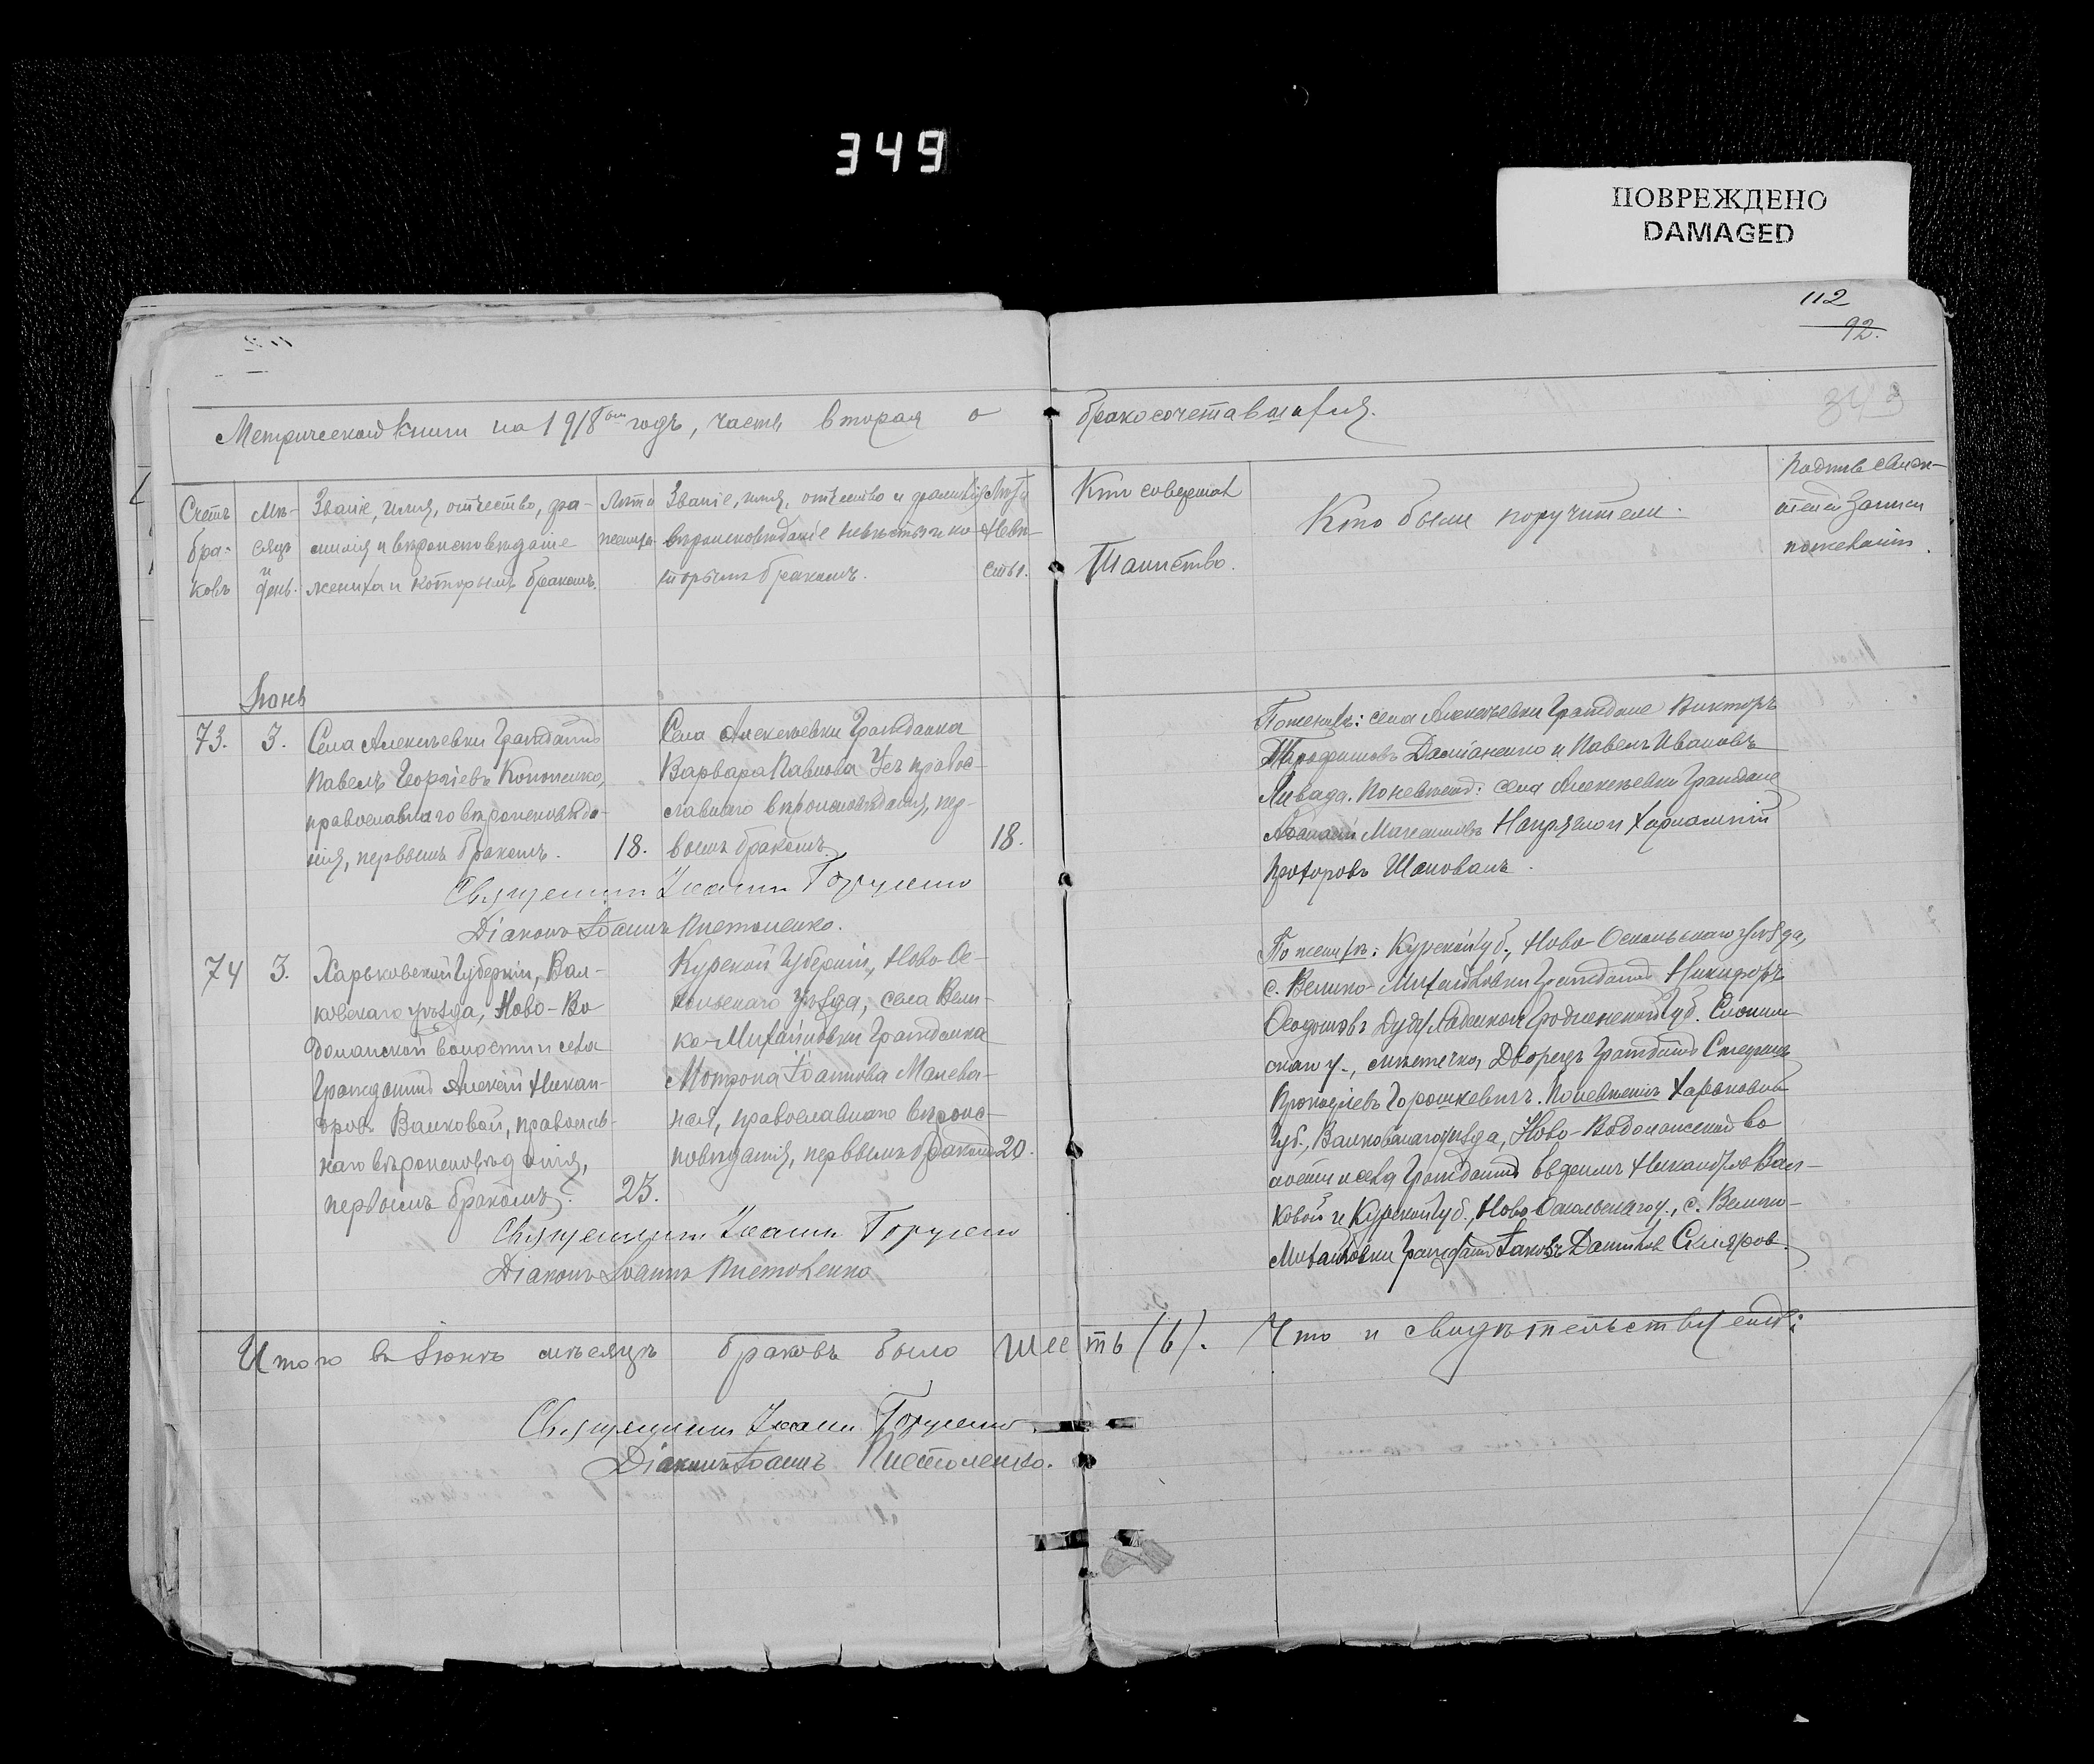 349
ПОВРЕЖДЕНО
DAMAGED
112
92.
Метрической книги на 1918 годъ, часть вторая о бракосочетавшихся.
Счетъ браковъ
Мѣсяцъ и день.
Званіе, имя, отчество, фамилія и вѣроисповѣданіе жениха и которымъ бракомъ.
Лѣта жениха
Званіе, имя, отчество и фамилія вѣроисповѣданіе невѣсты и которымъ бракомъ.
Лѣта Невѣсты.
Кто совершал Таинство.
Кто были поручители.
Подпись свидѣтелей записи по желанію.
Іюнь
73.
3.
Села Алексѣевки Гражданинъ
Павелъ Георгіевъ Кононенко,
православнаго вѣроисповѣда-
нія, первымъ бракомъ.
18.
Села Алексѣевки Гражданка
Варвара Павлова Усъ правос-
лавнаго вѣроисповѣданія, пер-
вымъ бракомъ
18.
По женихѣ: села Алексѣевки Граждане Викторъ
Трофимовъ Даміаненко и Павелъ Ивановъ
Ливада. По невѣстѣ: села Алексѣевки Граждане
Максимовъ
Прохоровъ Шаповалъ.
Священникъ Іоаннъ
Діаконъ Іоаннъ Пистоленко.
74
3.
Харьковской Губерніи, Вал-
ковскаго уѣзда, Ново-Во
долажской волости и села
Гражданинъ Алексѣй Никан-
дровъ Валковой, православ-
наго вѣроисповѣданія,
первымъ бракомъ.
23.
Курской Губерніи, Ново-Ос-
кольскаго уѣзда, села Вели-
ко-Михайловки Гражданка
Матрона Іоаннова Малева-
ная, православнаго вѣроис-
повѣданія, первымъ бракомъ
20.
По женихѣ: Курской губ., Ново-Оскольскаго уѣзда,
с. Велико-Михайловки Гражданинъ Никифоръ
Ѳеодотовъ Гродненской Губ. Слоним
скаго у., мѣстечка Дворецъ Гражданинъ Стефанъ
Прокопіевъ Горошкевичъ. По невѣстѣ Харьковск
Губ., Валковскаго уѣзда, Ново-Водолажской во
лости и села Гражданинъ Евдокимъ Никандровъ Вал-
ковой и Курской губ., Ново Оскольскаго у., с. Велико-
Михайловки Гражданинъ Іаковъ Даниловъ Скляров.
Священникъ Іоаннъ
Діаконъ Іоаннъ Пистоленко
Итого въ Іюнѣ мѣсяцѣ браковъ было шесть (6). Что и свидѣтельствуемъ:
Священникъ Іоаннъ
Діаконъ Іоаннъ Пистоленко.